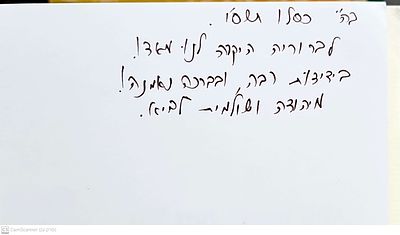 בה" כסלו תשס"ו.
לברוריה היקרה לנו מאד!
בידידות רבה, ובברכה נאמנה!
מיהודה ושולמית לביא.
CamScanner